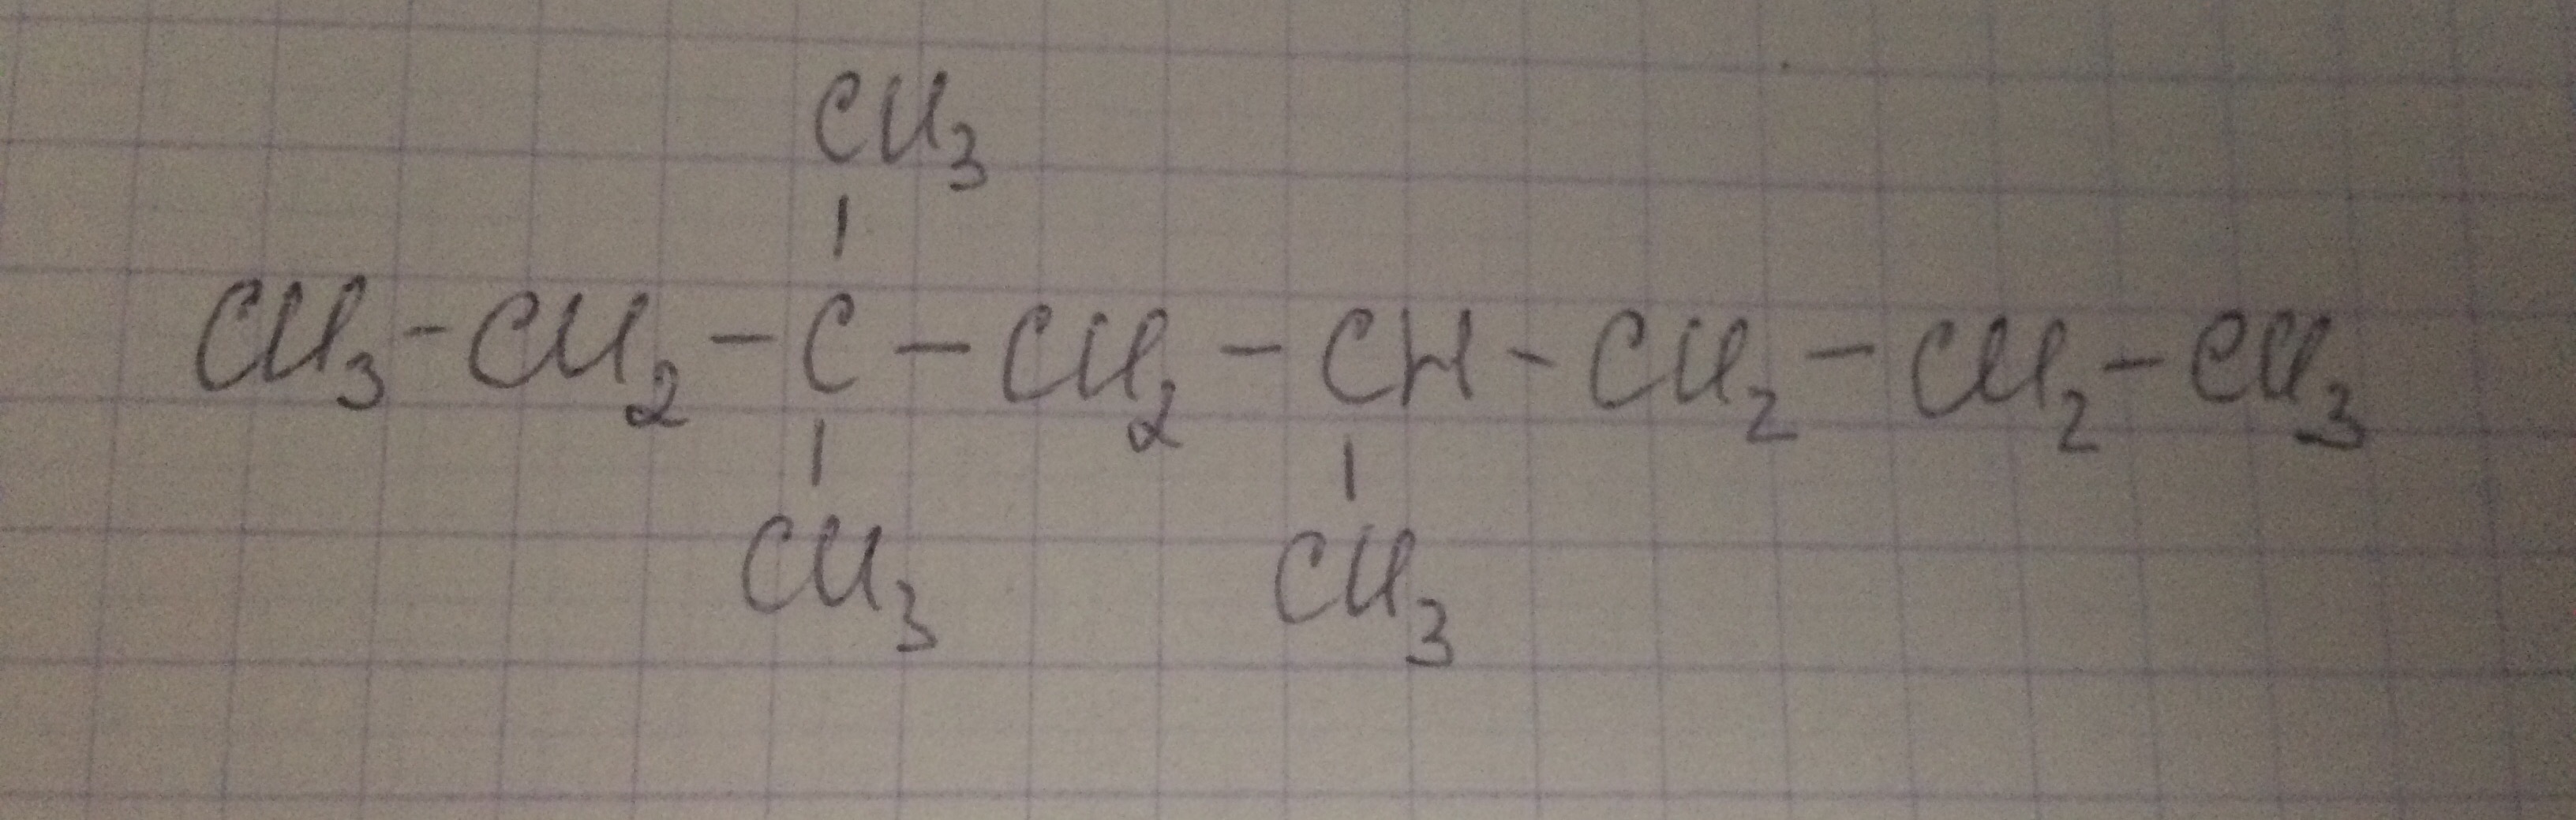 CH3
CH3-CH2-C-CH2-CH-CH2-CH2-CH3
CH3 CH3